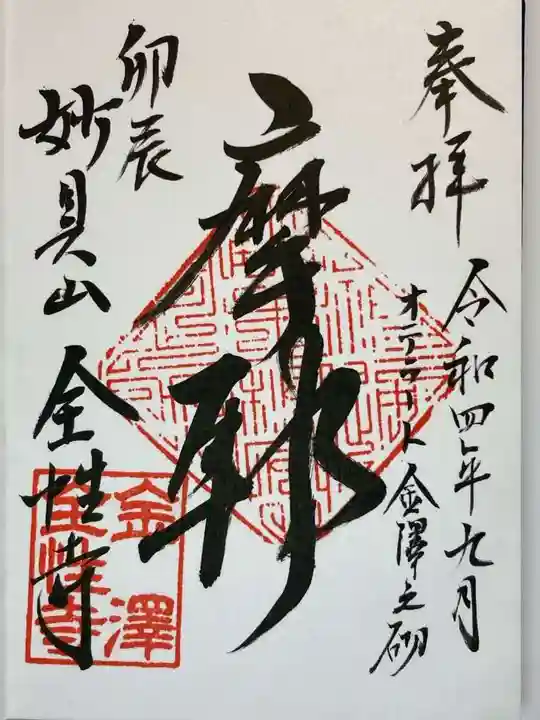 奉拝
令和四年九月
オテラート金澤之砌
摩耶
卯辰
妙具山 全性寺
金澤
全性寺